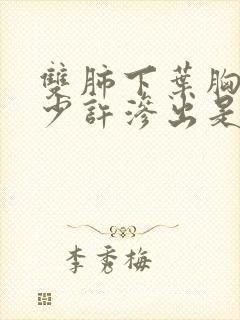 雙肺下葉胸
少許滲出是
李秀梅